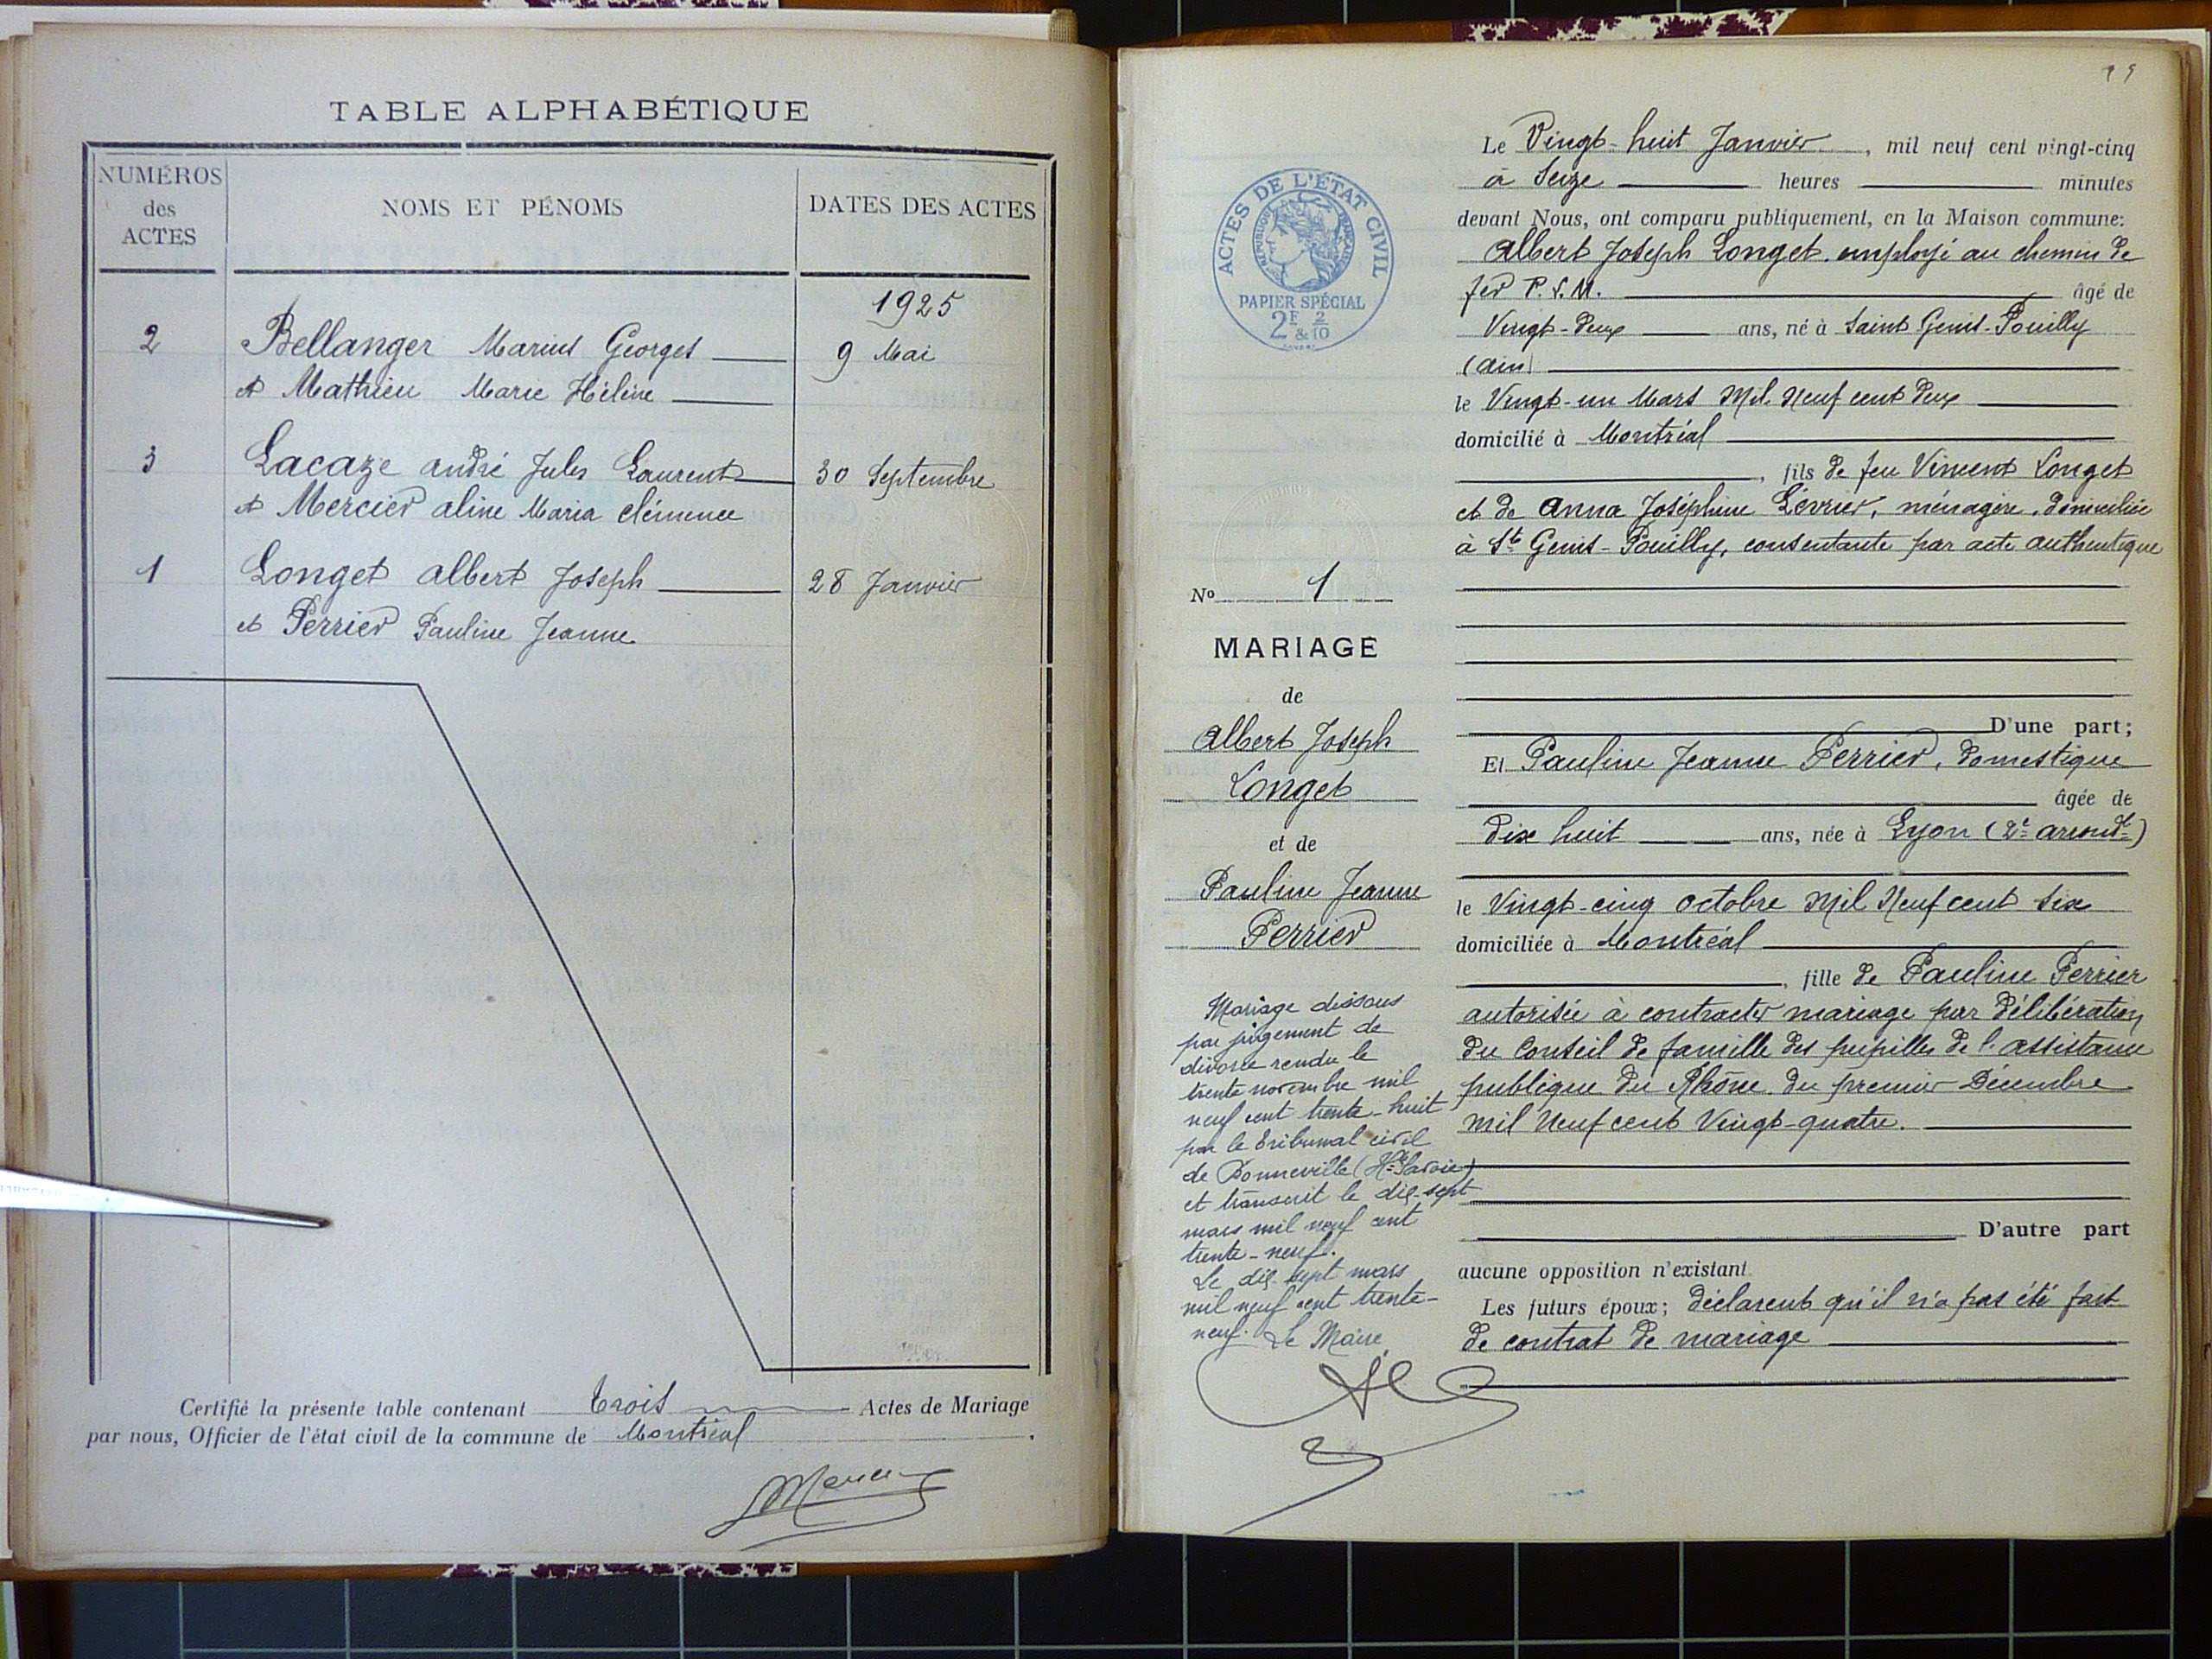 TABLE ALPHABÉTIQUE
NUMÉROS des ACTES
NOMS ET PÉNOMS
DATES DES ACTES
1925
2 Bellanger Marius Georges 9 Mai
et Mathieu Marie Hélène
3 Lacaze andré Jules Laurent 30 Septembre
et Mercier aline Maria clémence
1 Longet albert Joseph 28 Janvier
et Perrier Pauline Jeanne
Certifié la présente table contenant trois Actes de Mariage
par nous, Officier de l'état civil de la commune de Montréal.
ACTES DE L'ÉTAT CIVIL
RÉPUBLIQUE FRANÇAISE
PAPIER SPÉCIAL
2F & 2/10
No 1
MARIAGE
de
Albert Joseph
Longet
et de
Pauline Jeanne
Perrier
Mariage dissous
par jugement de
divorce rendu le
trente novembre mil
neuf cent trente-huit
par le tribunal civil
de Bonneville (Hte Savoie)
et transcrit le dix-sept
mars mil neuf cent
trente-neuf.
Le dix-sept mars
mil neuf cent trente-
neuf. Le Maire
Le Vingt-huit Janvier, mil neuf cent vingt-cinq
à Seize heures minutes
devant Nous, ont comparu publiquement, en la Maison commune:
Albert Joseph Longet, employé au chemin de
fer P.L.M. âgé de
Vingt-deux ans, né à Saint Genis-Pouilly
(ain)
le Vingt-un Mars Mil Neuf cent deux
domicilié à Montréal
, fils de feu Vincent Longet
et de Anna Joséphine Lévrier, ménagère, domiciliée
à St Genis-Pouilly, consentante par acte authentique
D'une part;
Et Pauline Jeanne Perrier, domestique
âgée de
dix huit ans, née à Lyon (2e arrondt)
le Vingt-cinq octobre Mil Neuf cent six
domiciliée à Montréal
, fille de Pauline Perrier
autorisée à contracter mariage par délibération
du Conseil de famille des pupilles de l'assistance
publique du Rhône du premier Décembre
Mil Neuf cent Vingt-quatre.
D'autre part
aucune opposition n'existant
Les futurs époux; déclarent qu'il n'a pas été fait
de contrat de mariage